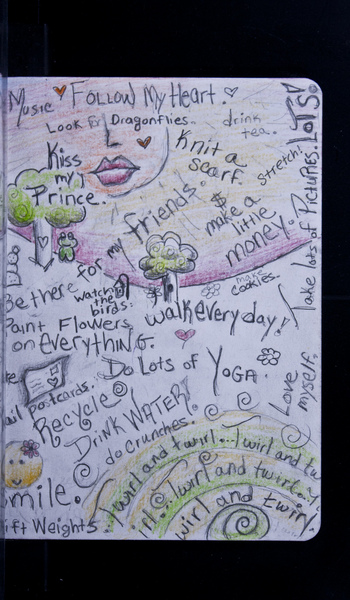 Music
Follow My Heart.
Look for Dragonflies..
drink
tea.
Knit a
scarf.
stretch!
Kiss
my
Prince..
Be there
for my friends.
$
make a
little
money.
Take lots of Pictures. LOTS.
watch
the
birds.
make
cookies.
walk every day!
Paint Flowers
on everything.
Do Lots of Yoga.
Love
myself.
mail postcards.
Recycle
Drink Water!
do Crunches.
Smile.
Lift Weights
Twirl and twirl... Twirl and tw
Twirl and twirl..
Twirl and twirl.